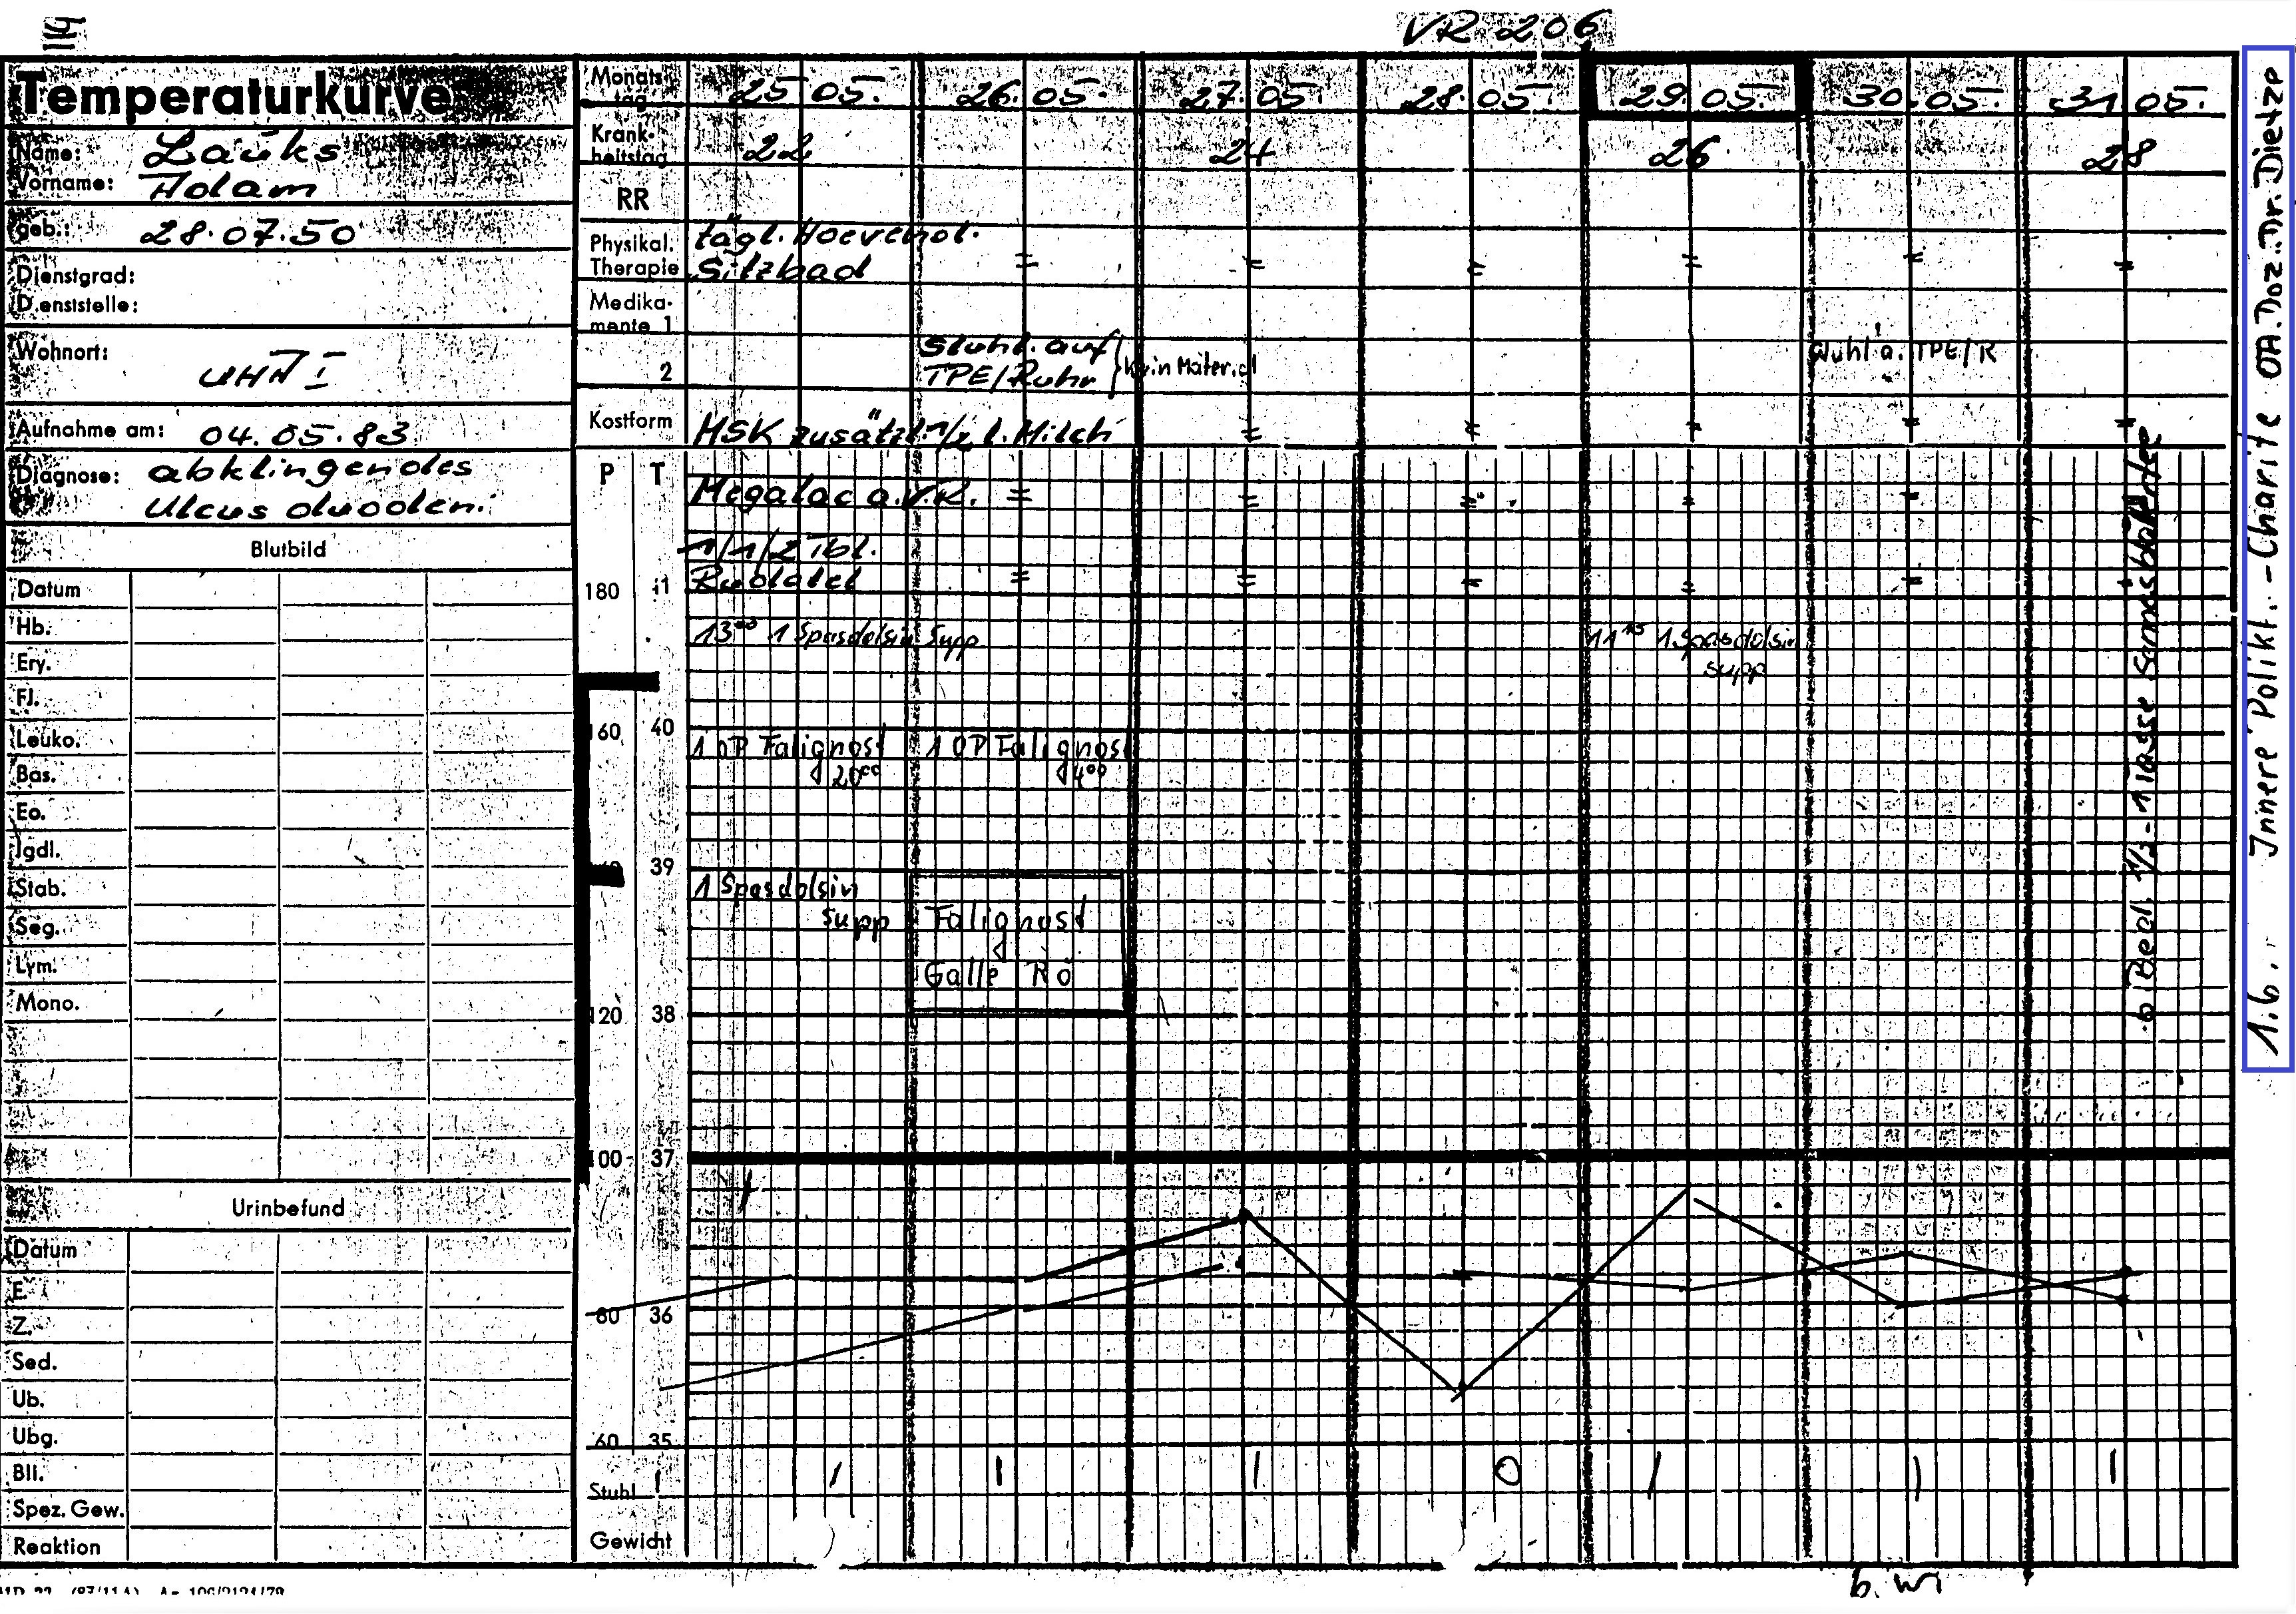 114
VR 206
Temperaturkurve
Name: Lauks
Vorname: Adam
geb.: 28.07.50
Dienstgrad:
Dienststelle:
Wohnort:
UHA I
Aufnahme am: 04.05.83
Diagnose: abklingendes
Ulcus duodeni
Blutbild
Datum
Hb.
Ery.
FJ.
Leuko.
Bas.
Eo.
Jgdl.
Stab.
Seg.
Lym.
Mono.
Urinbefund
Datum
E.
Z.
Sed.
Ub.
Ubg.
Bli.
Spez. Gew.
Reaktion
Monats-
tag 25 05. 26.05. 27.05. 28.05. 29.05. 30.05. 31.05.
Krank-
heitstag 22 24 26 28
RR
Physikal. tägl. Hoevenol.
Therapie Sitzbad = = = = = =
Medika-
mente 1
Stuhl. auf
2 TPE/Ruhr } kein Material
Stuhl a. TPE/R
Kostform MSK zusätzl. 1/2 l. Milch = = = = =
P T
Megalac a.V.R. = = = = =
1/1/2 Tbl.
= = = = =
180 41
13⁰⁰ 1 Spasdolsin Supp
11¹⁵ 1 Spasdolsin
Supp
160 40
1 OP Falignost 1 OP Falignost
20⁰⁰ 4⁰⁰
140 39
1 Spasdolsin
Supp
Falignost
Galle Rö
120 38
100 37
80 36
60 35
Stuhl 1 1 1 0 1 1 1
Gewicht
b. Wi
b. Bed. 1/2 - 1 Tasse
1.6. Innere Polikl. - Charite OA. Doz. Dr. Dietze